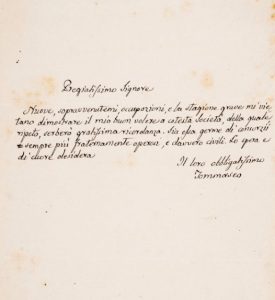 Pregiatissimo Signore
Nuove, sopravvenutemi, occupazioni, e la stagione grave mi vie
tano dimostrare il mio buon volere a cotesta Società, della quale,
ripeto, serberò gratissima ricordanza. Sia essa germe di consorzii
sempre più fraternamente operosi, e davvero civili. Lo spera e
di cuore desidera
Il loro obbligatissimo
Tommaseo